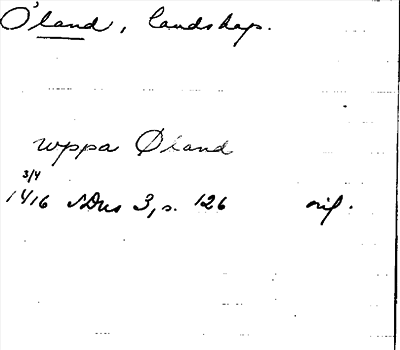 Öland, landskap.
uppa Øland
3/4
1416 SDns 3, s. 126 orig.